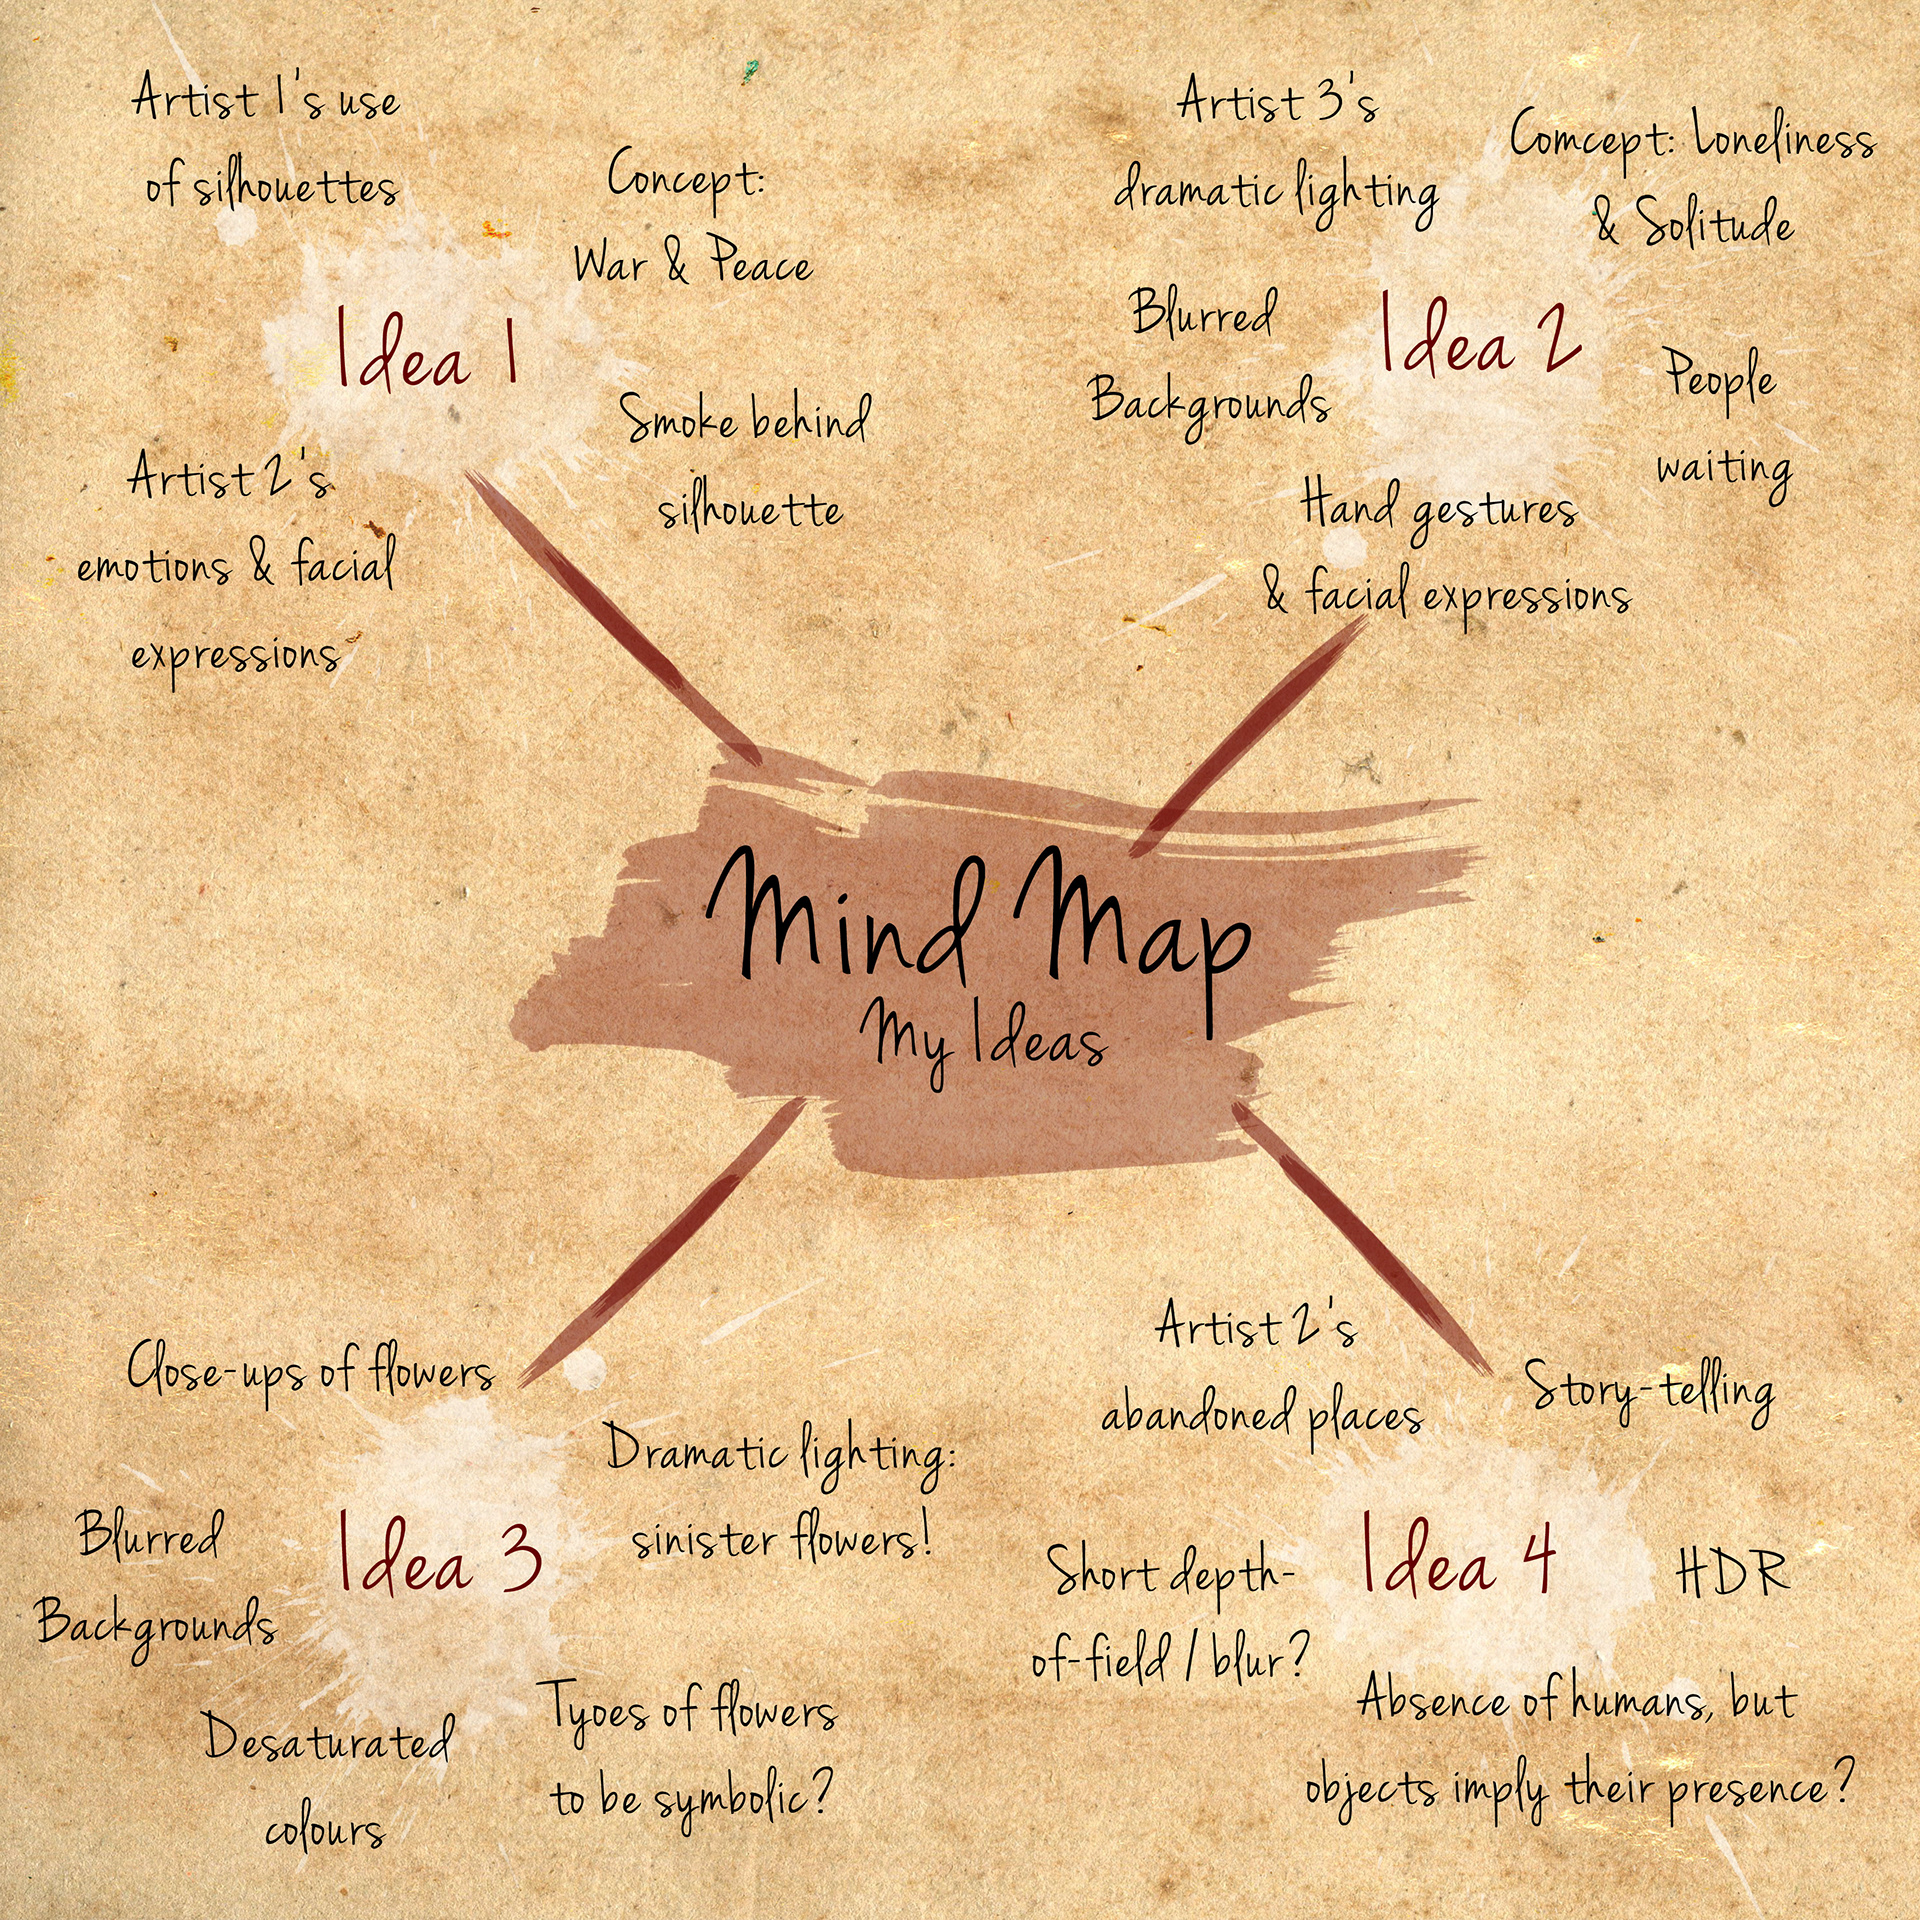 Artist 1's use
of silhouettes
Concept:
War & Peace
Idea 1
Smoke behind
silhouette
Artist 2's
emotions & facial
expressions
Artist 3's
dramatic lighting
Comcept: Loneliness
& Solitude
Blurred
Backgrounds
Idea 2
People
waiting
Hand gestures
& facial expressions
Mind Map
My Ideas
Close-ups of flowers
Dramatic lighting:
sinister flowers!
Blurred
Backgrounds
Idea 3
Desaturated
colours
Tyoes of flowers
to be symbolic?
Artist 2's
abandoned places
Story-telling
Short depth-
of-field / blur?
Idea 4
HDR
Absence of humans, but
objects imply their presence?